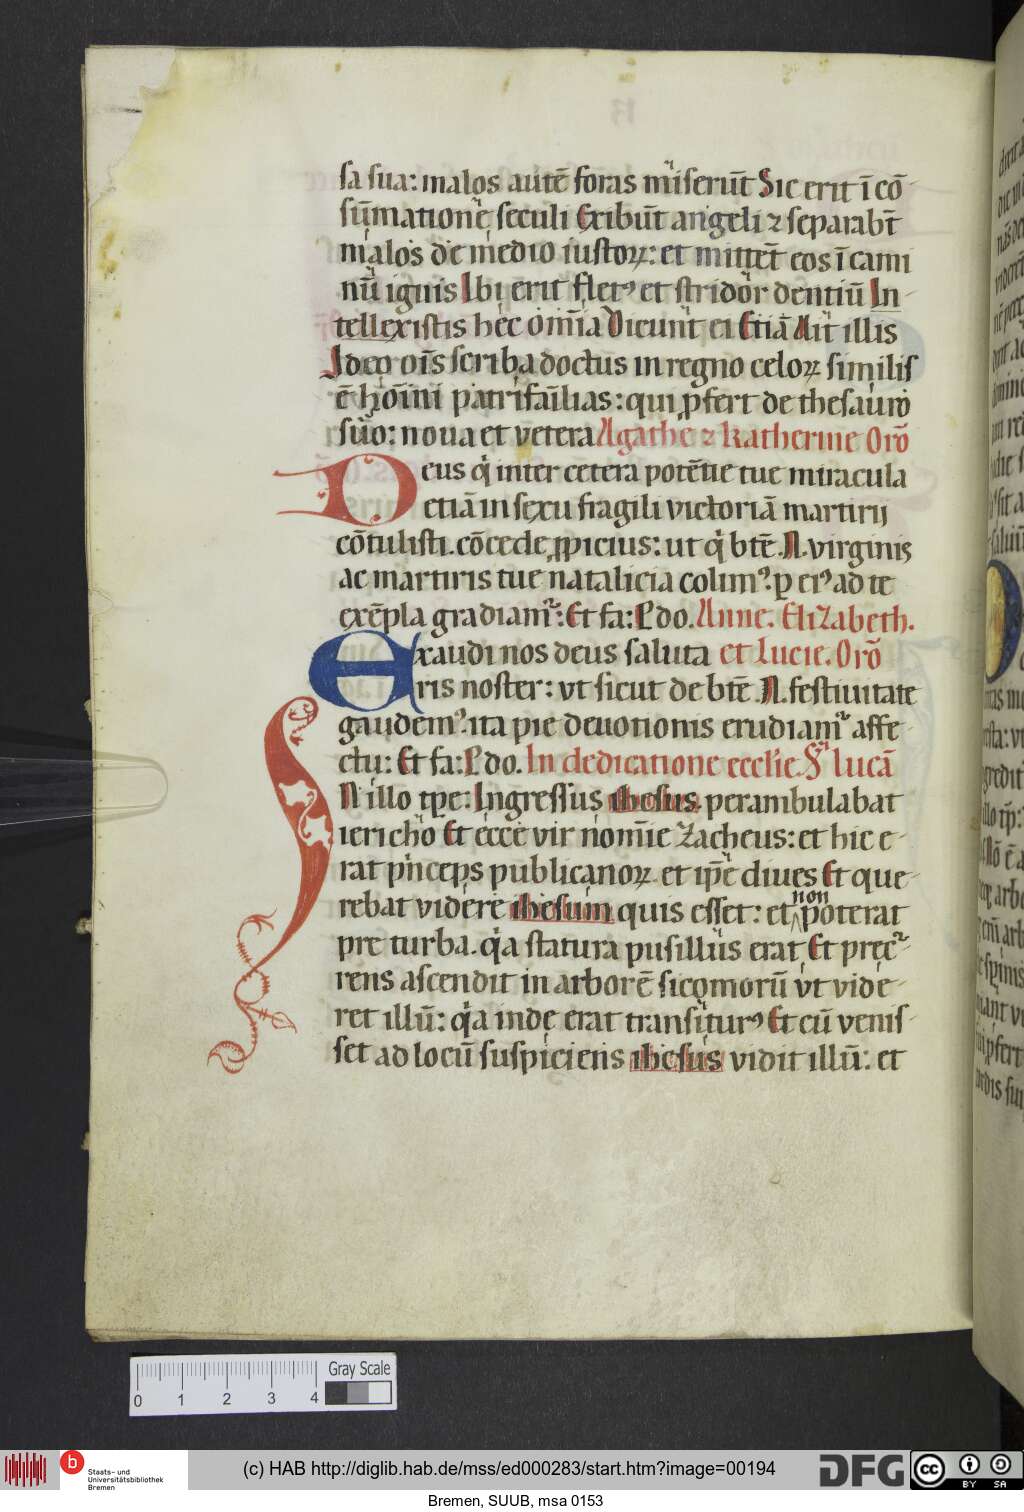 sa sua: malos autē foras miserūt Sic erit ī cō-
sūmatione seculi Exibūt angeli ⁊ separabt̄
malos de medio iustoꝝ: et mittēt eos ī cami
nū ignis Ibi erit flet⁹ et stridor dentiū In-
tellexistis hec om̄ia Dicunt ei Etiā Ait illis
Ideo oīs scriba doctus in regno celoꝝ similis
ē hoīni patrifamīlias: qui ꝓfert de thesauro
suo: noua et vetera Agathe ⁊ Katherine Orō
Deus qͥ inter cetera potētie tue miracula
etiā in sexu fragili victoriā martirij
cōtulisti. cōcede ꝓpicius: ut qͥ btē .N. virginis
ac martiris tue natalicia colim⁹. ꝑ ei⁹ ad te
exēpla gradiamͬ: Et fa: P do. Anne. Elizabeth.
Exaudi nos deus saluta et Lucie. Orō
aris noster: vt sicut de btē .N. festiuitate
gaudem⁹. ita pie deuotionis erudiamͬ affe-
ctu: Et fa: P do. In dedicatione ecclīe. Sͫ lucā
IN illo tp̄e: Ingressus ihesus perambulabat
iericho Et ecce vir nomīe zacheus: et hic e-
rat pͥnceps publicanoꝝ. et ip̄e diues Et que-
rebat videre ihesum quis esset: et non poterat
pre turba. qͥa statura pusillus erat Et precͬ-
rens ascendit in arborē sicomorū vt vide-
ret illū: qͥa inde erat transiturꝰ Et cū venis-
set ad locū suspiciens ihesus vidit illū: et
0 1 2 3 4
Gray Scale
b Staats- und
Universitätsbibliothek
Bremen
(c) HAB http://diglib.hab.de/mss/ed000283/start.htm?image=00194
DFG
cc BY SA
Bremen, SUUB, msa 0153